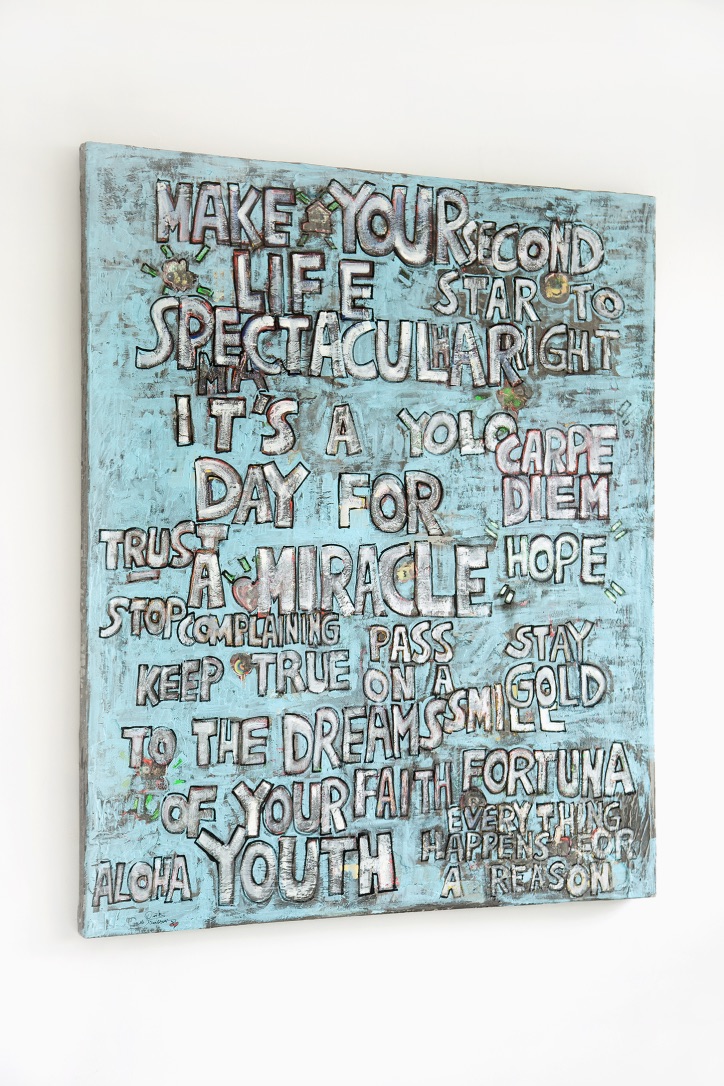 MAKE YOUR
SECOND
LIFE
STAR TO
SPECTACULAR
RIGHT
IT'S A
YOLO
CARPE
DIEM
DAY FOR
TRUST
A MIRACLE
HOPE
STOP COMPLAINING
PASS
ON A
SMILE
STAY
GOLD
KEEP TRUE
TO THE DREAMS
OF YOUR
FAITH
FORTUNA
YOUTH
EVERYTHING
HAPPENS FOR
A REASON
ALOHA